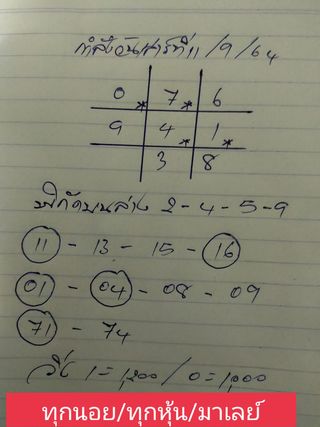 กำลังวันเสาร์ที่ 11/9/64
0 * 7 * 6
9 4 * 1 *
3 8
พิกัดบนล่าง 2-4-5-9
11 - 13 - 15 - 16
01 - 04 - 08 - 09
71 - 74
วิ่ง 1=1,200 / 0=1,000
ทุกนอย/ทุกหุ้น/มาเลย์